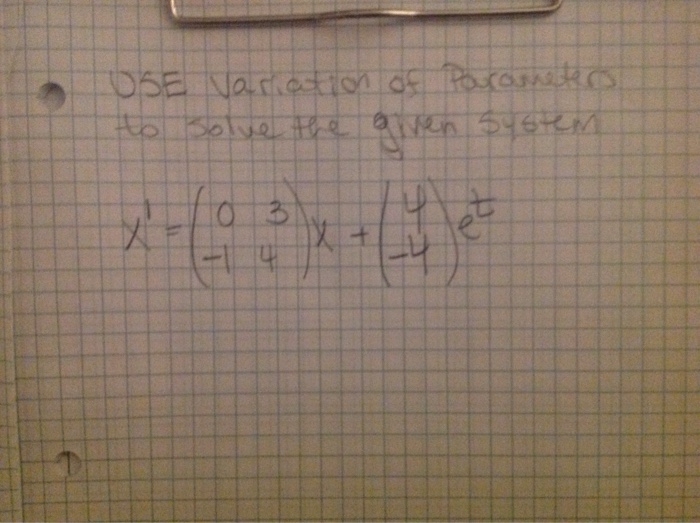 USE Variation of Parameters
to solve the given System
X' = (0 3
-1 4) X + (4
-4) e^t